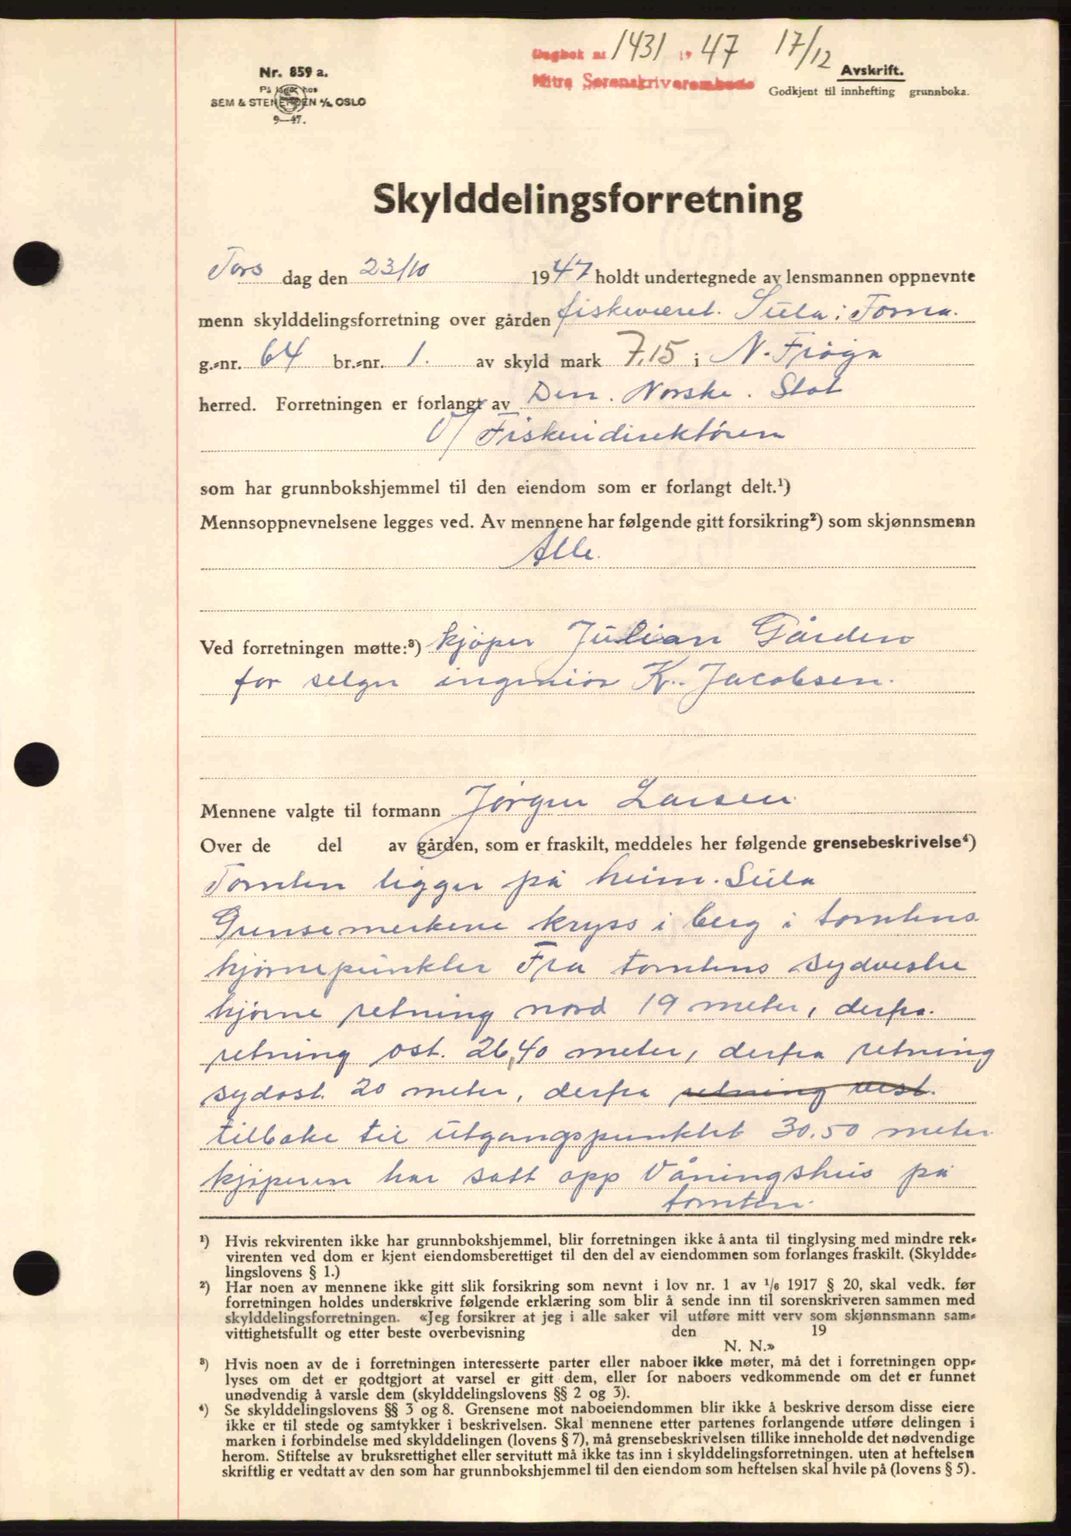 Dagbok nr 1431 19 47 17/12
Mitre Sorenskriverembede
Nr. 859 a.
På lager hos
SEM & STENERSEN A/S OSLO
9—47.
Avskrift.
Godkjent til innhefting grunnboka.
Skylddelingsforretning
Tors dag den 23/10 1947 holdt undertegnede av lensmannen oppnevnte
menn skylddelingsforretning over gården fiskeværet. Sula i Forna.
g.-nr. 64 br.-nr. 1. av skyld mark 7,15 i N-Frøya
herred. Forretningen er forlangt av Den. Norske. Stat
v/ Fiskeridirektören
som har grunnbokshjemmel til den eiendom som er forlangt delt.¹)
Mennsoppnevnelsene legges ved. Av mennene har følgende gitt forsikring²) som skjønnsmenn
Alle.
Ved forretningen møtte:³) kjøper Julian Gården
for selger ingeniør K. Jacobsen.
Mennene valgte til formann Jørgen Larsen
Over de del av gården, som er fraskilt, meddeles her følgende grensebeskrivelse⁴)
Tomten ligger på heim. Sula
Grensemerkene kryss i berg i tomtens
hjørnepunkter Fra tomtens sydvestre
hjørne retning nord 19 meter, derfra.
retning øst. 26,40 meter, derfra retning
sydøst. 20 meter, derfra retning vest.
tilbake til utgangspunktet 30.50 meter
kjøperen har satt opp Våningshus på
tomten.
¹) Hvis rekvirenten ikke har grunnbokshjemmel, blir forretningen ikke å anta til tinglysing med mindre rek-
virenten ved dom er kjent eiendomsberettiget til den del av eiendommen som forlanges fraskilt. (Skyldde-
lingslovens § 1.)
²) Har noen av mennene ikke gitt slik forsikring som nevnt i lov nr. 1 av ¹/₆ 1917 § 20, skal vedk. før
forretningen holdes underskrive følgende erklæring som blir å sende inn til sorenskriveren sammen med
skylddelingsforretningen. «Jeg forsikrer at jeg i alle saker vil utføre mitt verv som skjønnsmann sam-
vittighetsfullt og etter beste overbevisning den 19
N. N.»
³) Hvis noen av de i forretningen interesserte parter eller naboer ikke møter, må det i forretningen opp-
lyses om det er godtgjort at varsel er gitt dem, eller for naboers vedkommende om det er funnet
unødvendig å varsle dem (skylddelingslovens §§ 2 og 3).
⁴) Se skylddelingslovens §§ 3 og 8. Grensene mot naboeiendommen blir ikke å beskrive dersom disse eiere
ikke er til stede og samtykker i beskrivelsen. Skal mennene etter partenes forlangende utføre delingen i
marken i forbindelse med skylddelingen (lovens § 7), må grensebeskrivelsen tillike inneholde det nødvendige
herom. Stiftelse av bruksrettighet eller servitutt må ikke tas inn i skylddelingsforretningen. uten at heftelsen
skriftlig er vedtatt av den som har grunnbokshjemmel til den eiendom som heftelsen skal hvile på (lovens § 5).